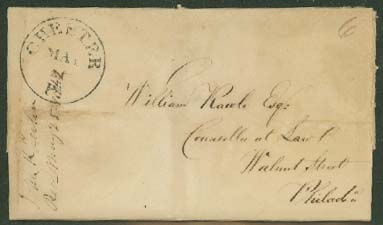 CHESTER
MA
6
William Rawle Esq:
Counsellor at Law
Walnut Street
Philad^a